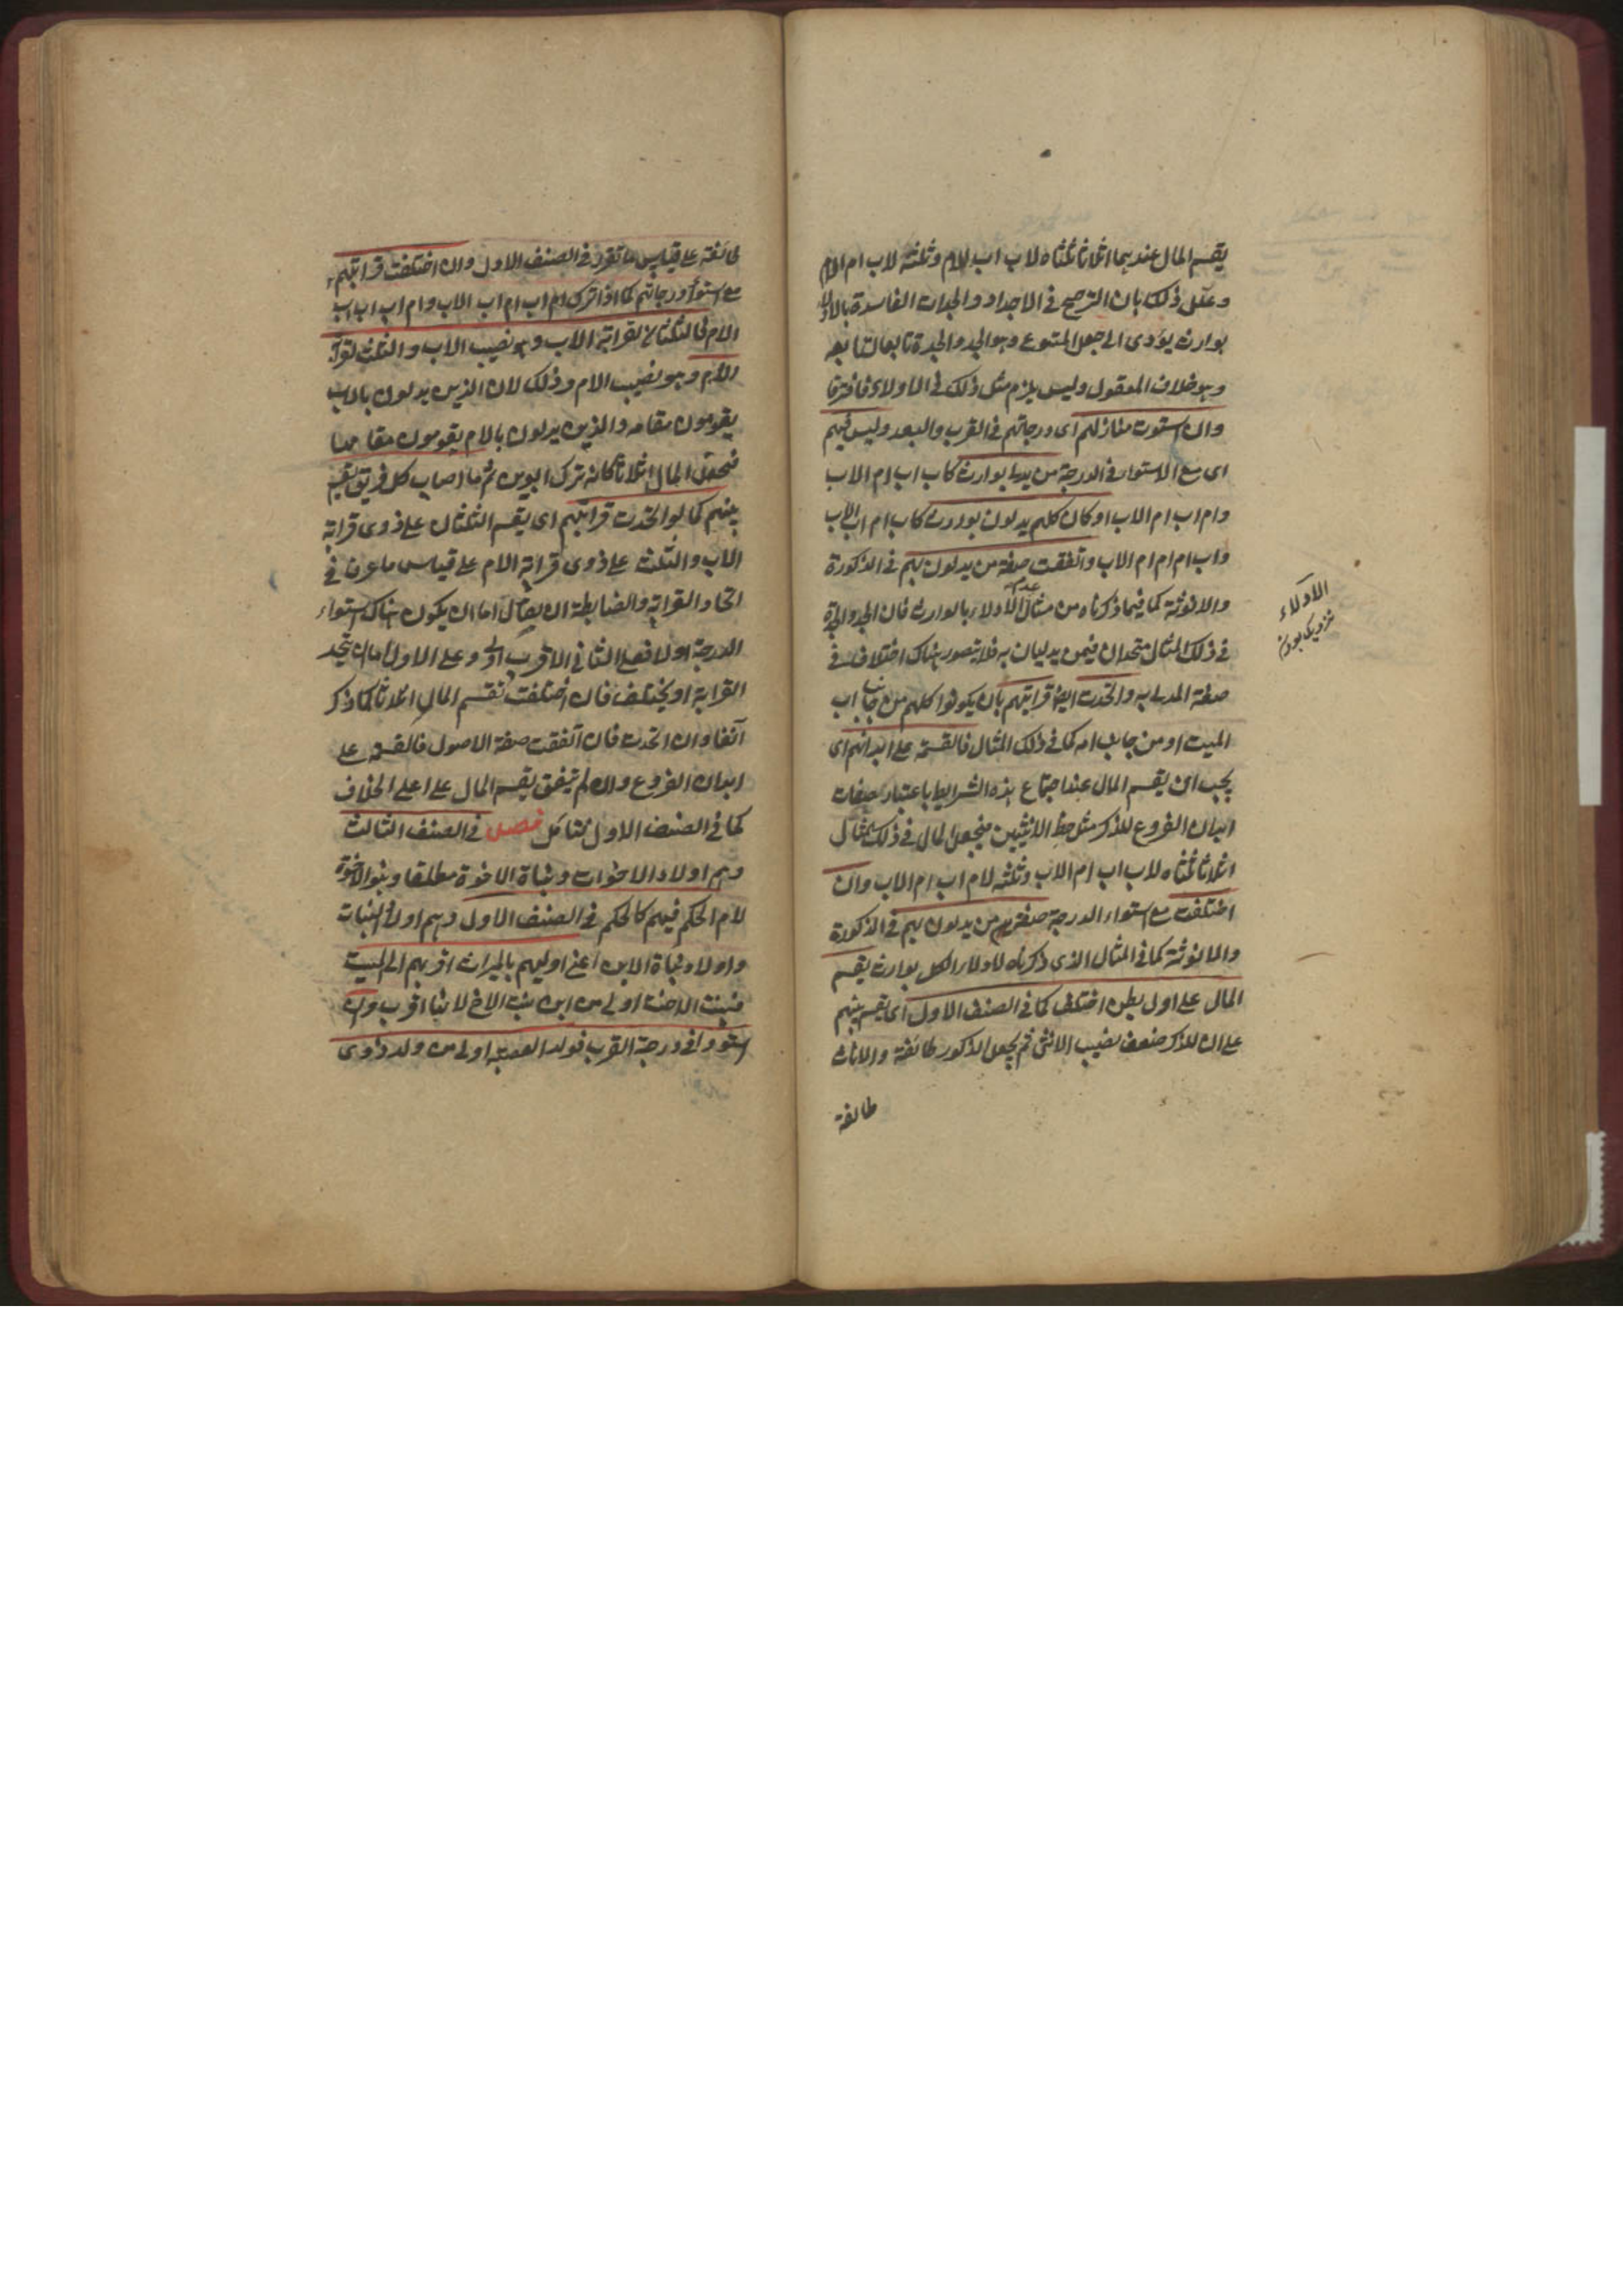 يقسم المال عندهما اثلاثا ثلثاه لاب اب الام وثلثه لاب ام الام
وعلل ذلك بان الترجيح فى الاجداد والجدات الفاسدة بالادلاء
بوارث يؤدى الى جعل المتبوع وهو الجد والجدة تابعا لتابعه
وهو خلاف المعقول وليس يلزم مثل ذلك فى الاولاد فافترقا
وان استوت منازلهم اى درجاتهم فى القرب والبعد وليس فيهم
اى مع الاستواء فى الدرجة من يدلى بوارث كاب اب ام الاب
وام اب ام الاب او كان كلهم يدلون بوارث كاب ام اب الاب
واب ام ام ام الاب واتفقت صفة من يدلون بهم فى الذكورة
والانوثة كما فيما ذكرناه من مثال عدم الادلاء بالوارث فان الجد والجدة
فى ذلك المثال متحدان فيمن يدليان به فلا يتصور هناك اختلاف فى
صفة المدلى به واتحدت ايضا قرابتهم بان يكونوا كلهم من جانب اب
الميت او من جانب امه كما فى ذلك المثال فالقسمة على ابدانهم اى
يجب ان يقسم المال عند اجتماع هذه الشرايط باعتبار صفات
ابدان الفروع للذكر مثل حظ الانثيين فيجعل المال فى ذلك المثال
اثلاثا ثلثاه لاب اب ام الاب وثلثه لام اب ام الاب وان
اختلفت مع استواء الدرجة صفة من يدلون بهم فى الذكورة
والانوثة كما فى المثال الذى ذكرناه لادلاء الكل بوارث يقسم
المال على اول بطن اختلف كما فى الصنف الاول اى يقسم بينهم
على ان للذكر ضعف نصيب الانثى ثم يجعل الذكور طائفة والاناث
طائفة
الادلاء
نزديك بودن
طائفة على قياس ما تقرر فى الصنف الاول وان اختلفت قرابتهم
مع استواء درجاتهم كما اذا ترك ام اب ام اب الاب وام اب اب اب
الام فالثلثان لقرابة الاب وهو نصيب الاب والثلث لقرابة
الام وهو نصيب الام وذلك لان الذين يدلون بالاب
يقومون مقامه والذين يدلون بالام يقومون مقامها
فيجعل المال اثلاثا كانه ترك ابوين ثم ما اصاب كل فريق يقسم
بينهم كما لو اتحدت قرابتهم اى يقسم الثلثان على ذوى قرابة
الاب والثلث على ذوى قرابة الام على قياس ما عرف فى
اتحاد القرابة والضابطة ان يقال اما ان يكون هناك استواء
الدرجة او لا فعلى الثانى الاقرب اولى وعلى الاول اما ان يتحد
القرابة او يختلف فان اختلفت يقسم المال اثلاثا كما ذكر
آنفا وان اتحدت فان اتفقت صفة الاصول فالقسمة على
ابدان الفروع وان لم يتفق يقسم المال على اعلى الخلاف
كما فى الصنف الاول فتامل فصل فى الصنف الثالث
وهم اولاد الاخوات وبناة الاخوة مطلقا وبنو الاخوة
لام الحكم فيهم كالحكم فى الصنف الاول وهم اولاد البنات
واولاد بناة الابن اعنى اوليهم بالميراث اقربهم الى الميت
فبنت الاخت اولى من ابن بنت الاخ لانها اقرب وان
استووا فى درجة القرب فولد العصبة اولى من ولد ذوى